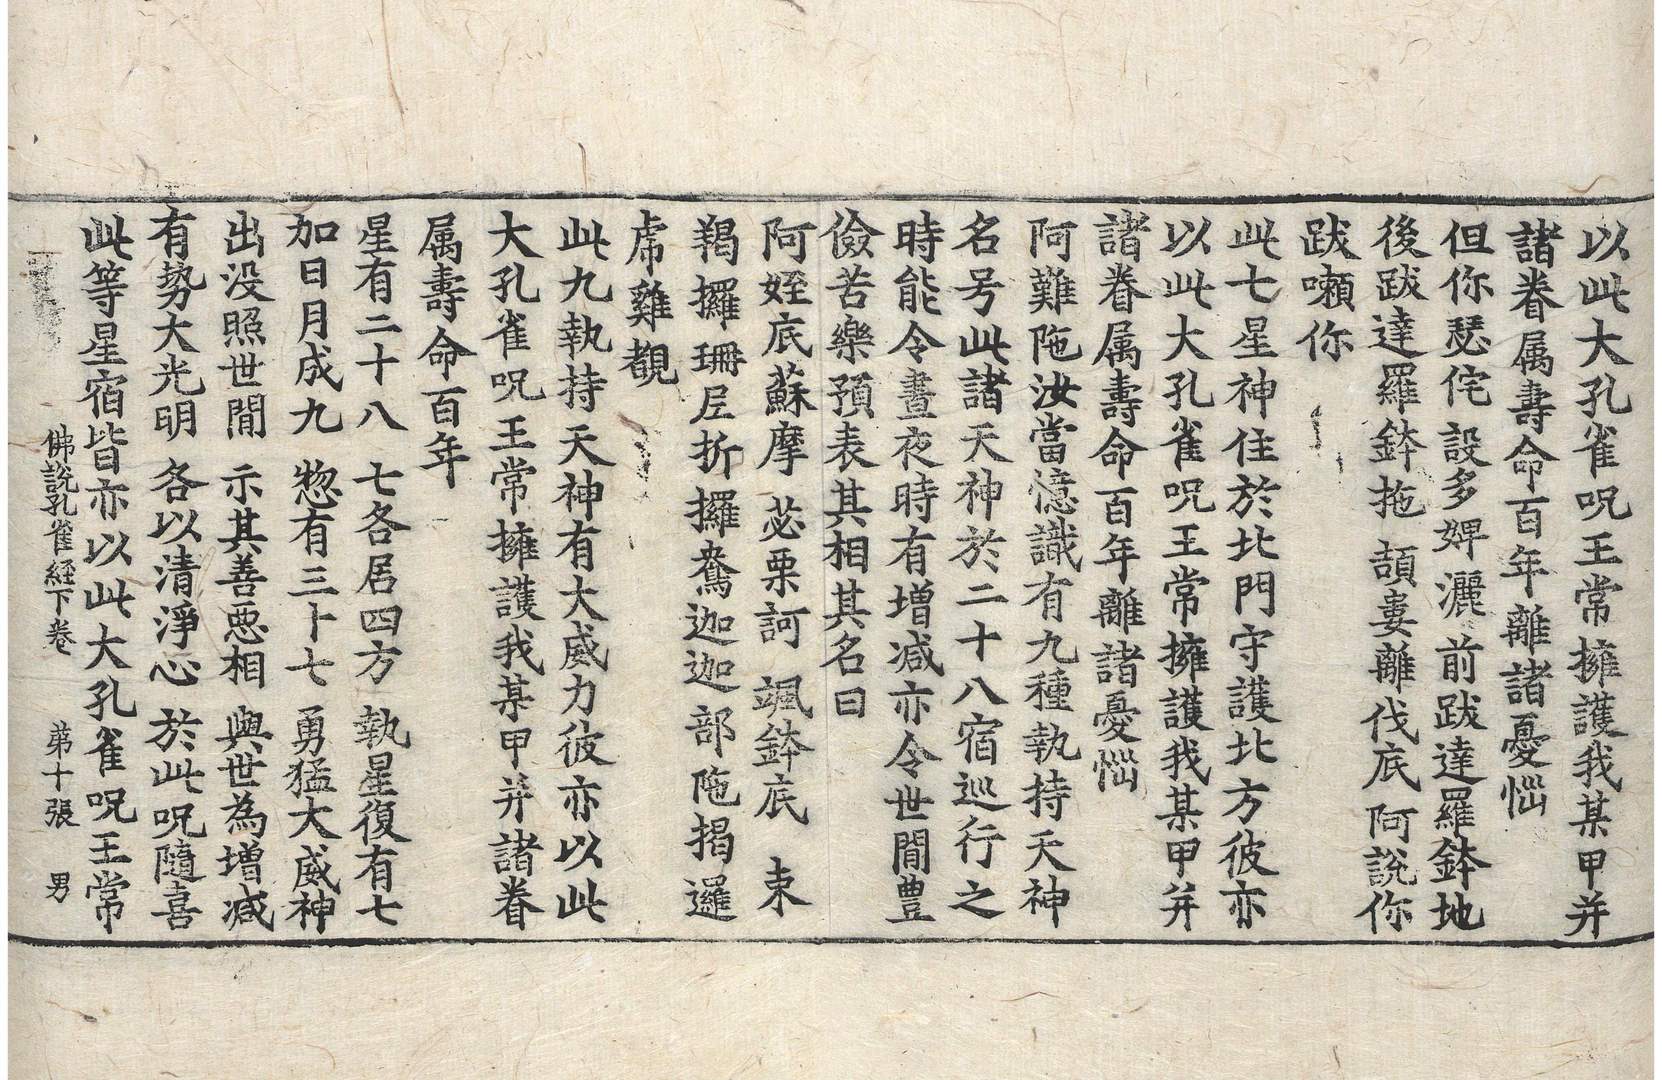 以此大孔雀呪王常擁護我某甲并
諸眷属壽命百年離諸憂惱
但你瑟侘設多婢灑前跋達羅鉢地
後跋達羅鉢拖 頡婁離伐底 阿說你
跋囇你
此七星神住於北門守護北方彼亦
以此大孔雀呪王常擁護我某甲并
諸眷属壽命百年離諸憂惱
阿難陁汝當憶識有九種執持天神
名号此諸天神於二十八宿巡行之
時能令晝夜時有增減亦令世間豊
儉苦樂預表其相其名曰
阿姪底蘇摩 苾栗訶 颯鉢底 束
羯攞珊尼折攞鴦迦迦部陁揭邏
虎雞覩
此九執持天神有大威力彼亦以此
大孔雀呪王常擁護我某甲并諸眷
属壽命百年
星有二十八 七各居四方 執星復有七
加日月成九 惣有三十七 勇猛大威神
出没照世間 示其善惡相 與世為增減
有勢大光明 各以清淨心 於此呪隨喜
此等星宿皆亦以此大孔雀呪王常
佛說孔雀經下卷 第十張 男